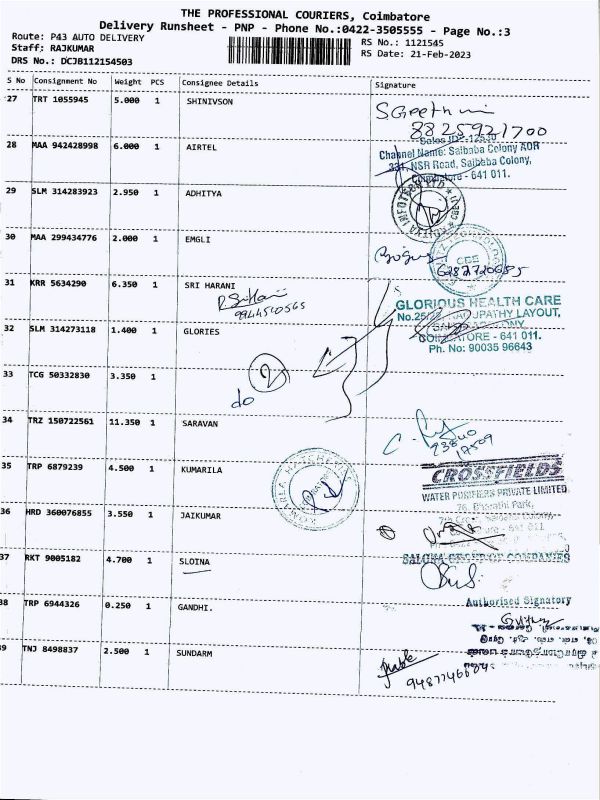 THE PROFESSIONAL COURIERS, Coimbatore
Delivery Runsheet - PNP - Phone No.:0422-3505555 - Page No.:3
Route: P43 AUTO DELIVERY
Staff: RAJKUMAR
DRS No.: DCJB112154503
RS No.: 1121545
RS Date: 21-Feb-2023
S No Consignment No Weight PCS Consignee Details Signature
27 TRT 1055945 5.000 1 SHINIVSON
8825921700
28 MAA 942428998 6.000 1 AIRTEL
Channel Name: Saibaba Colony AOR
331, NSR Road, Saibaba Colony,
Coimbatore - 641 011.
29 SLM 314283923 2.950 1 ADHITYA
30 MAA 299434776 2.000 1 EMGLI
31 KRR 5634290 6.350 1 SRI HARANI
9944510565
GLORIOUS HEALTH CARE
LAYOUT,
COIMBATORE - 641 011.
Ph. No: 90035 96643
32 SLM 314273118 1.400 1 GLORIES
33 TCG 50332830 3.350 1
do 2
34 TRZ 150722561 11.350 1 SARAVAN
35 TRP 6879239 4.500 1 KUMARILA
CROSSFIELDS
WATER PURIFIERS PRIVATE LIMITED
76, Bharathi Park,
36 HRD 360076855 3.550 1 JAIKUMAR
37 RKT 9005182 4.700 1 SLOINA
SALONA GROUP OF COMPANIES
Authorised Signatory
38 TRP 6944326 0.250 1 GANDHI.
39 TNJ 8498837 2.500 1 SUNDARM